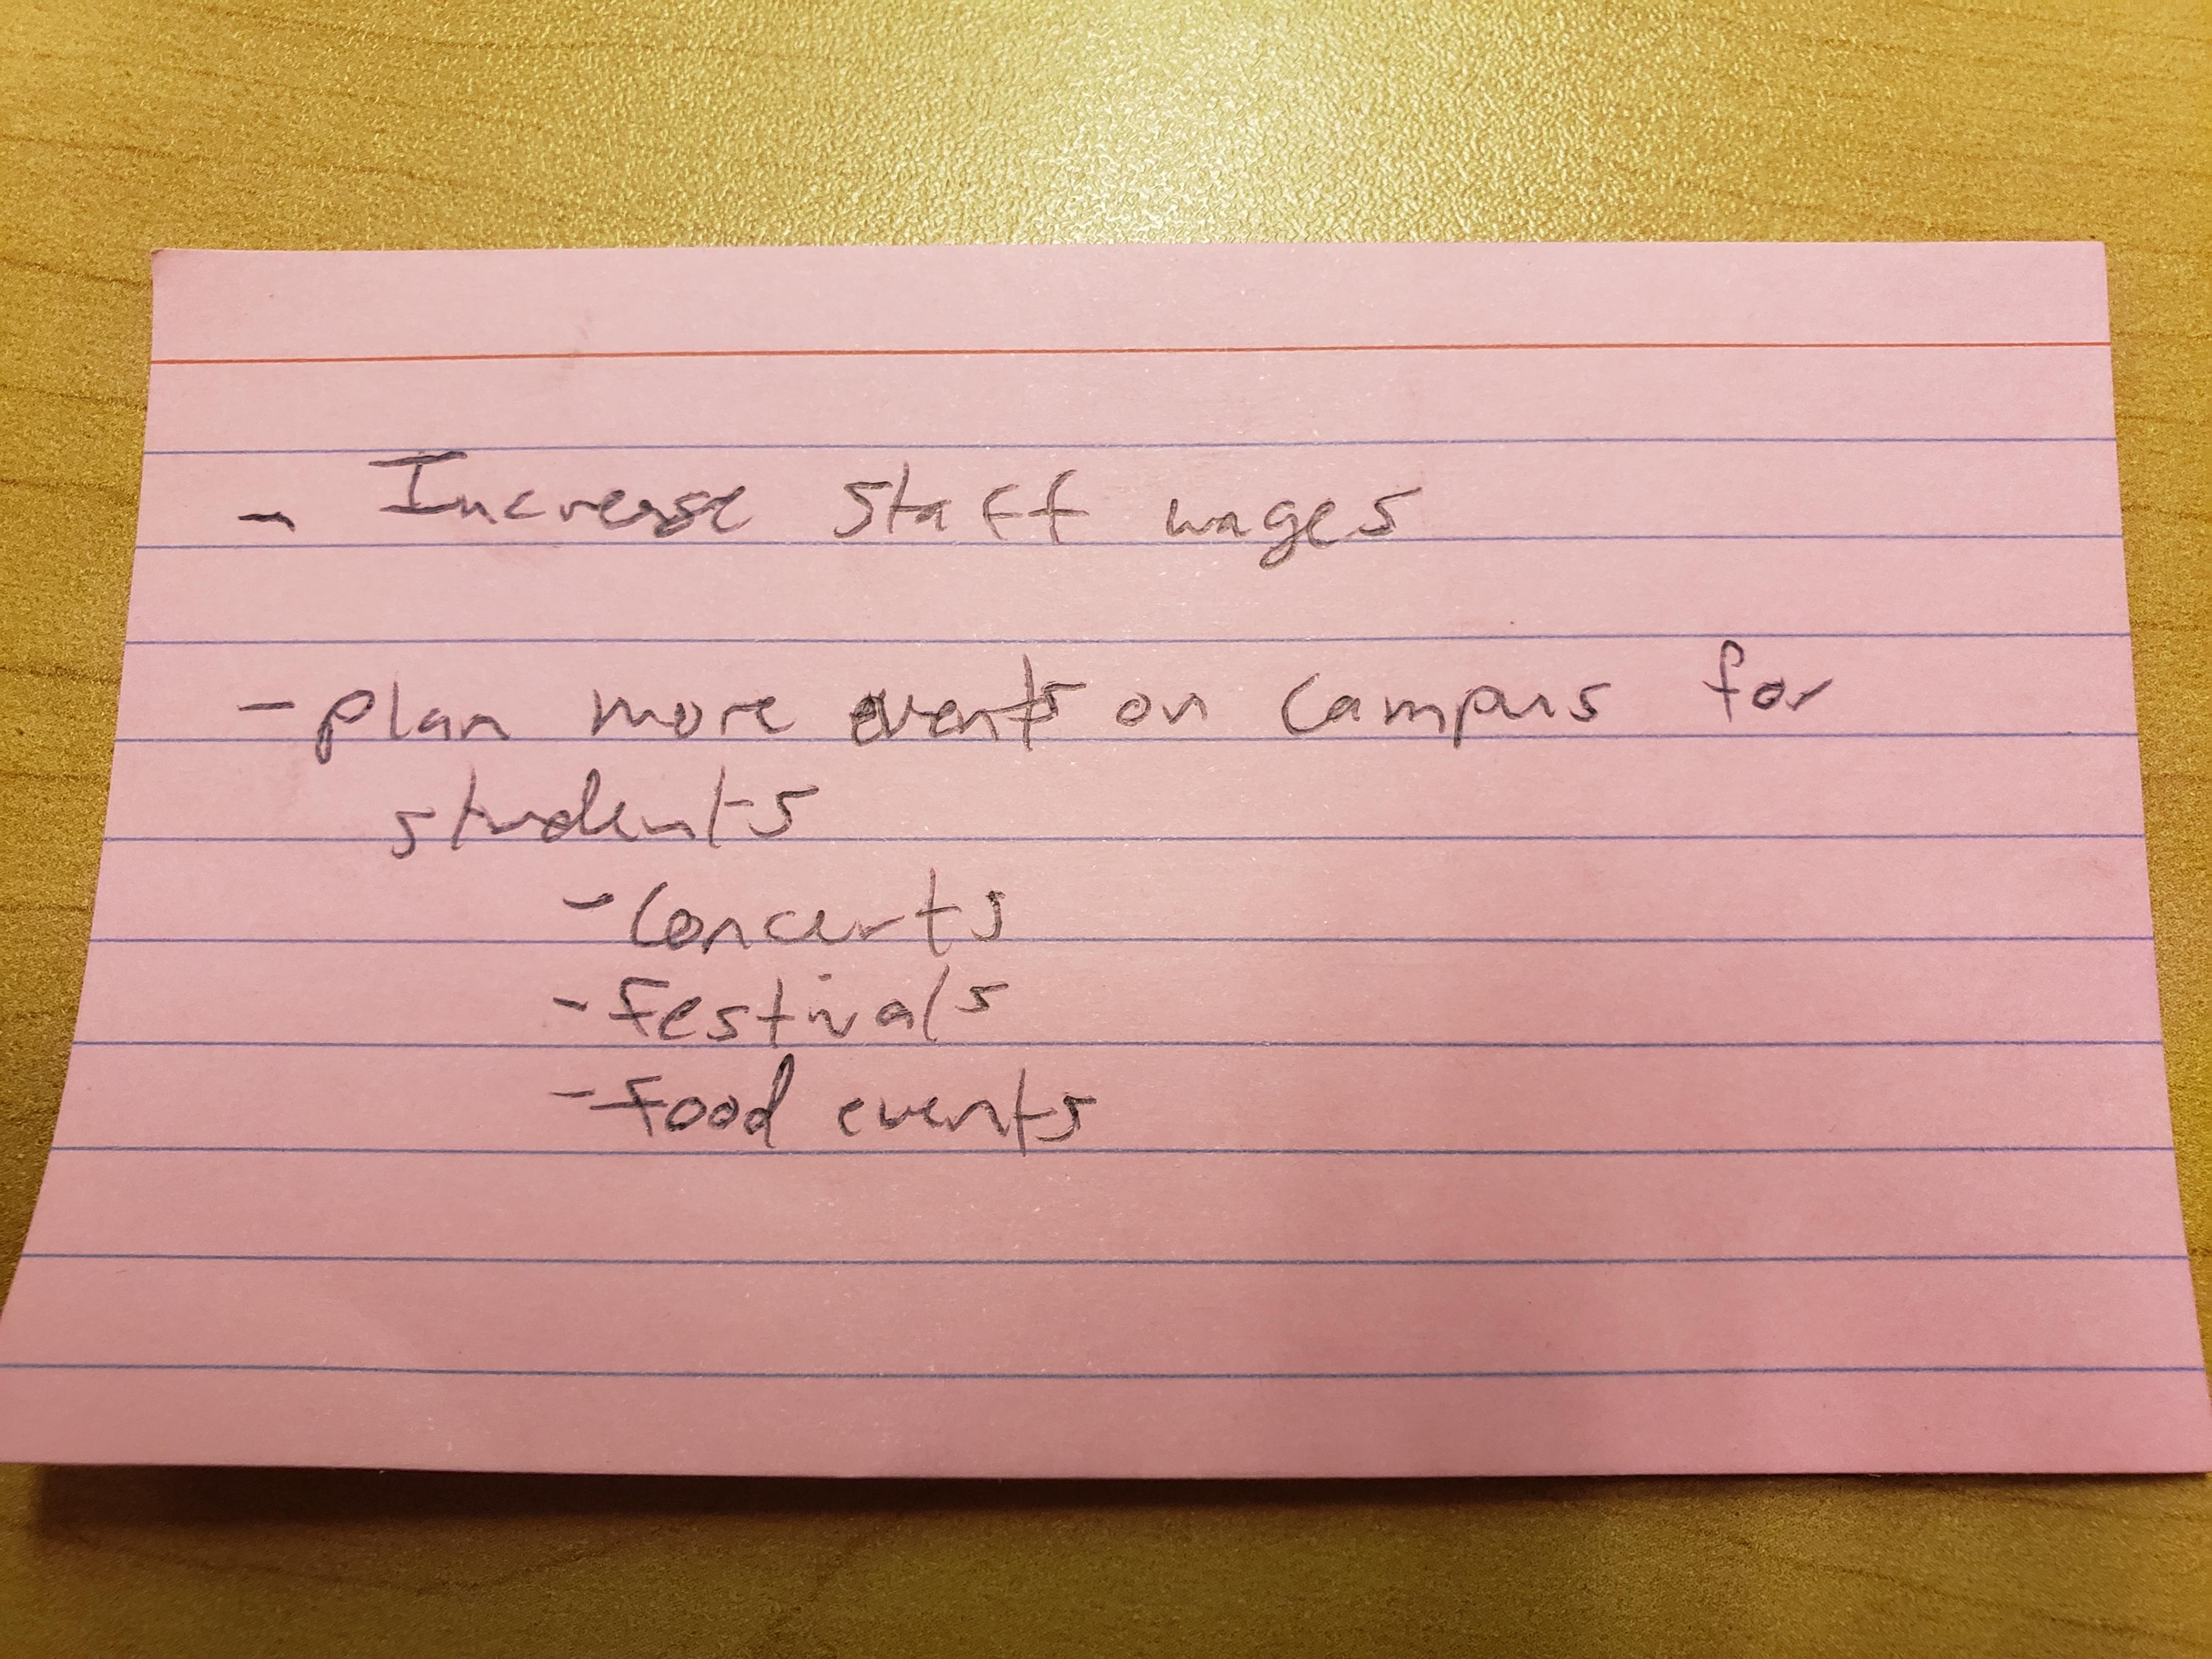 - Increase staff wages
- plan more events on campus for
students
- Concerts
- festivals
- food events